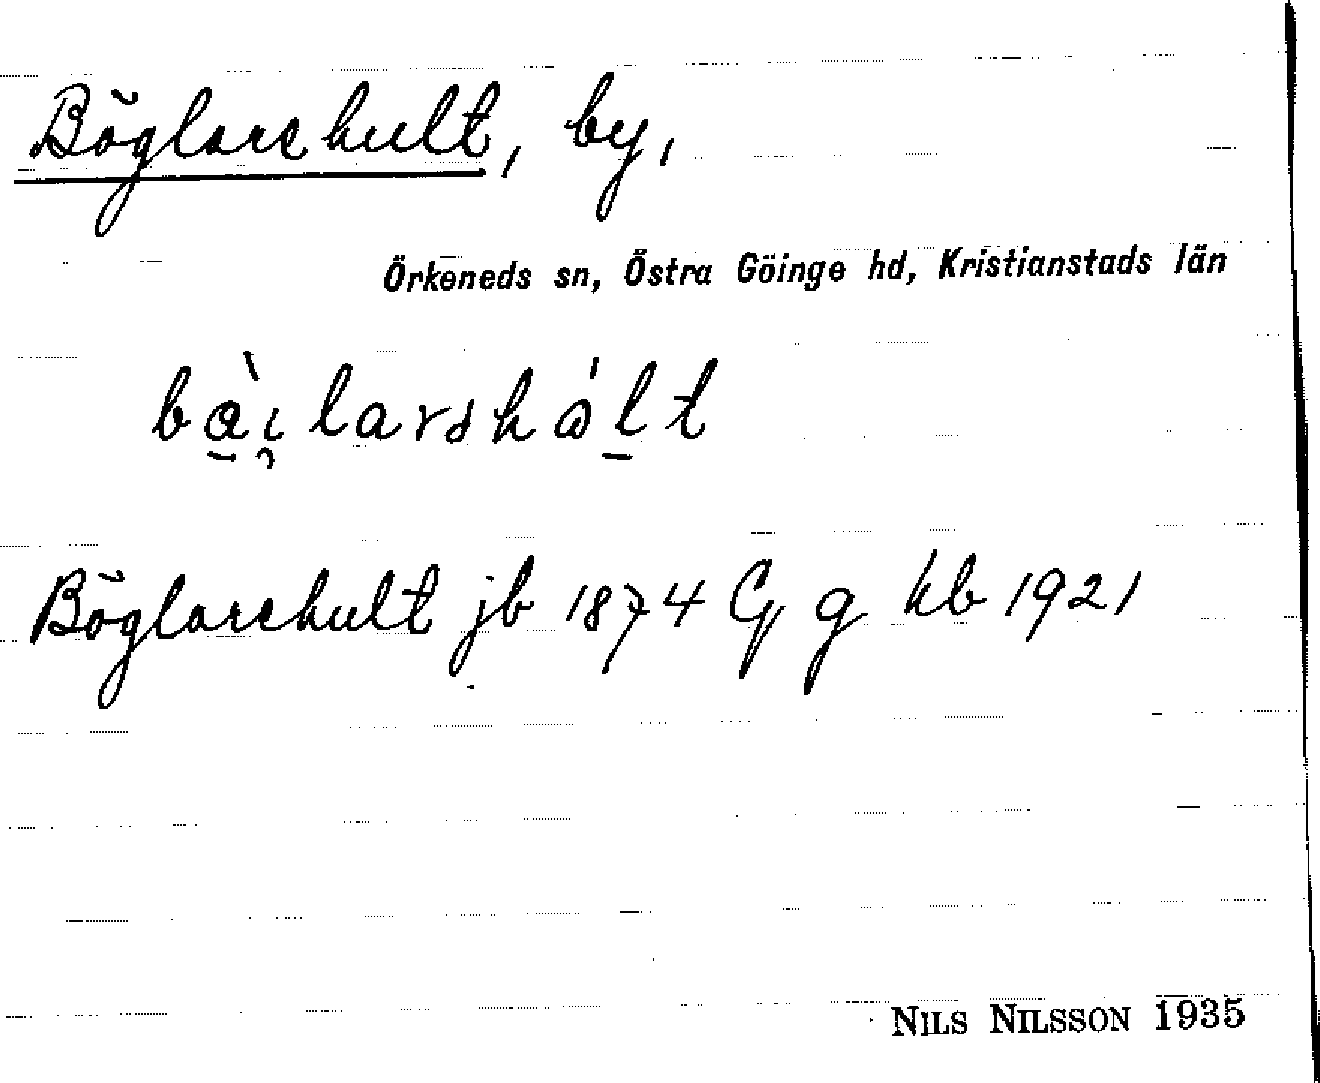 Böglarehult, by,
Örkeneds sn, Östra Göinge hd, Kristianstads län
Böglarehult jb 1874 G g kb 1921
NILS NILSSON 1935